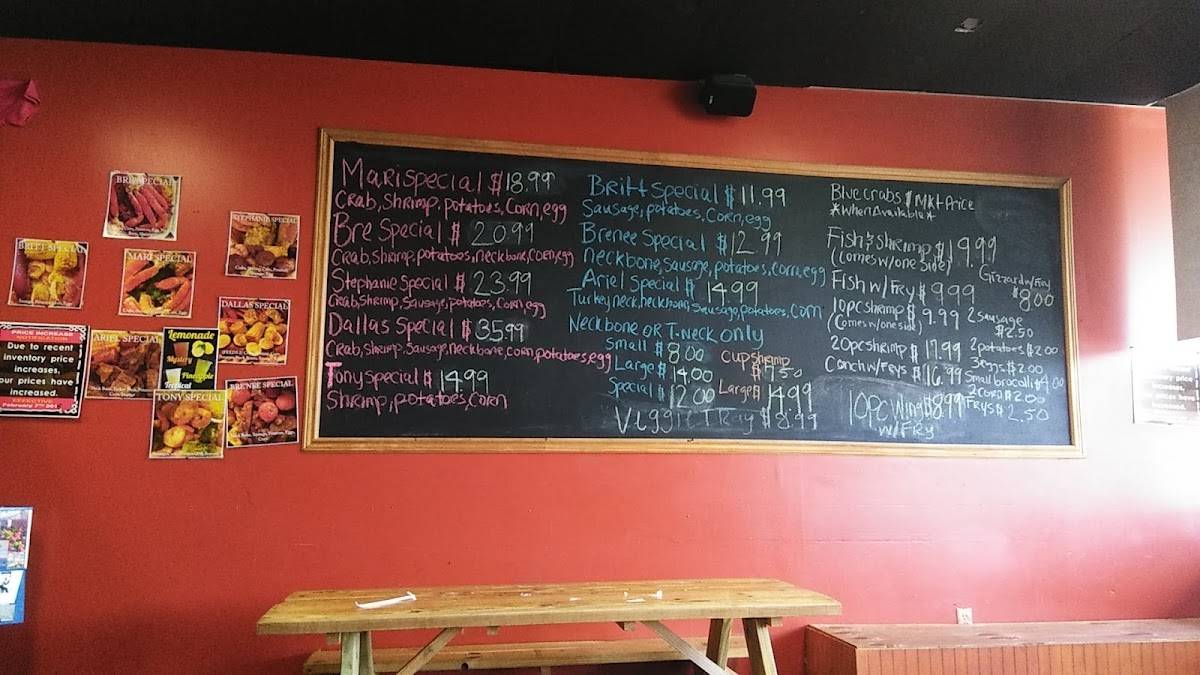 BRE SPECIAL
STEPHANIE SPECIAL
Crab, Shrimp, Corn, Potatoes,
BRITT SPECIAL
MARI SPECIAL
DALLAS SPECIAL
ARIEL SPECIAL
Lemonade
Mystery
Pineapple
Tropical
TONY SPECIAL
BRENEE SPECIAL
PRICE INCREASE
NOTIFICATION
Due to recent
inventory price
increases,
our prices have
increased.
EFFECTIVE
Mari special $18.99
Crab, Shrimp, potatoes, Corn, egg
Bre Special $20.99
Crab, Shrimp, potatoes, neckbone, corn, egg
Stephanie Special $23.99
Crab, Shrimp, Sausage, potatoes, Corn, egg
Dallas Special $35.99
Crab, Shrimp, Sausage, neckbone, corn, potatoes, egg
Tony special $14.99
Shrimp, potatoes, Corn
Britt special $11.99
Sausage, potatoes, Corn, egg
Brenee Special $12.99
Neckbone, Sausage, potatoes, corn, egg
Ariel Special $14.99
Turkey neck, neckbone, Sausage, potatoes, Corn
Neckbone OR T.Neck only
Small $8.00
Large $14.00
Special $12.00
Cup shrimp
$7.50
Large $14.99
Veggie Tray $8.99
Blue crabs $ MKT Price
*When Available*
Fish & shrimp $19.99
(Comes w/one Side)
Fish w/ Fry $9.99
10pc shrimp $9.99
(Comes w/one side)
20pc shrimp $17.99
Conch w/Frys $16.99
10pc Wing $8.99
w/Fry
Gizzard w/Fry
$8.00
2 sausage
$2.50
2 potatoes $2.00
3 eggs $2.00
Small brocolli $4.00
2 corn $2.00
Frys $2.50